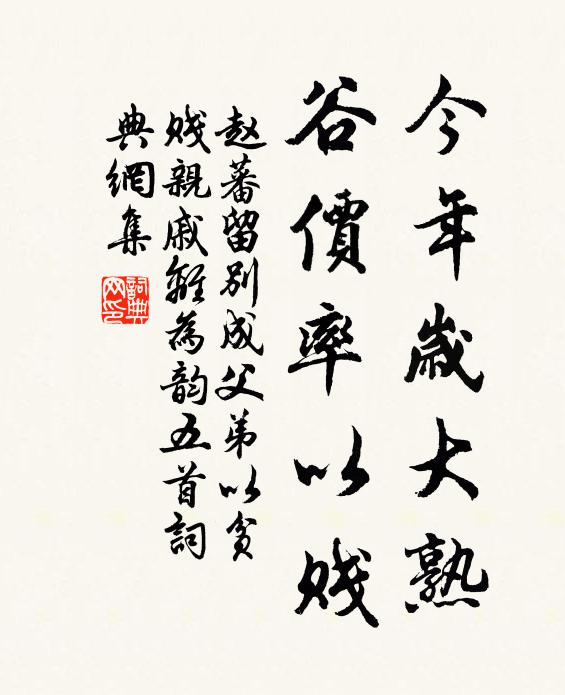 今年歲大熟
谷價率以賤
赵蕃留別成父弟以贫
賤親戚離為韵五首詞
典網集
詞典
网印